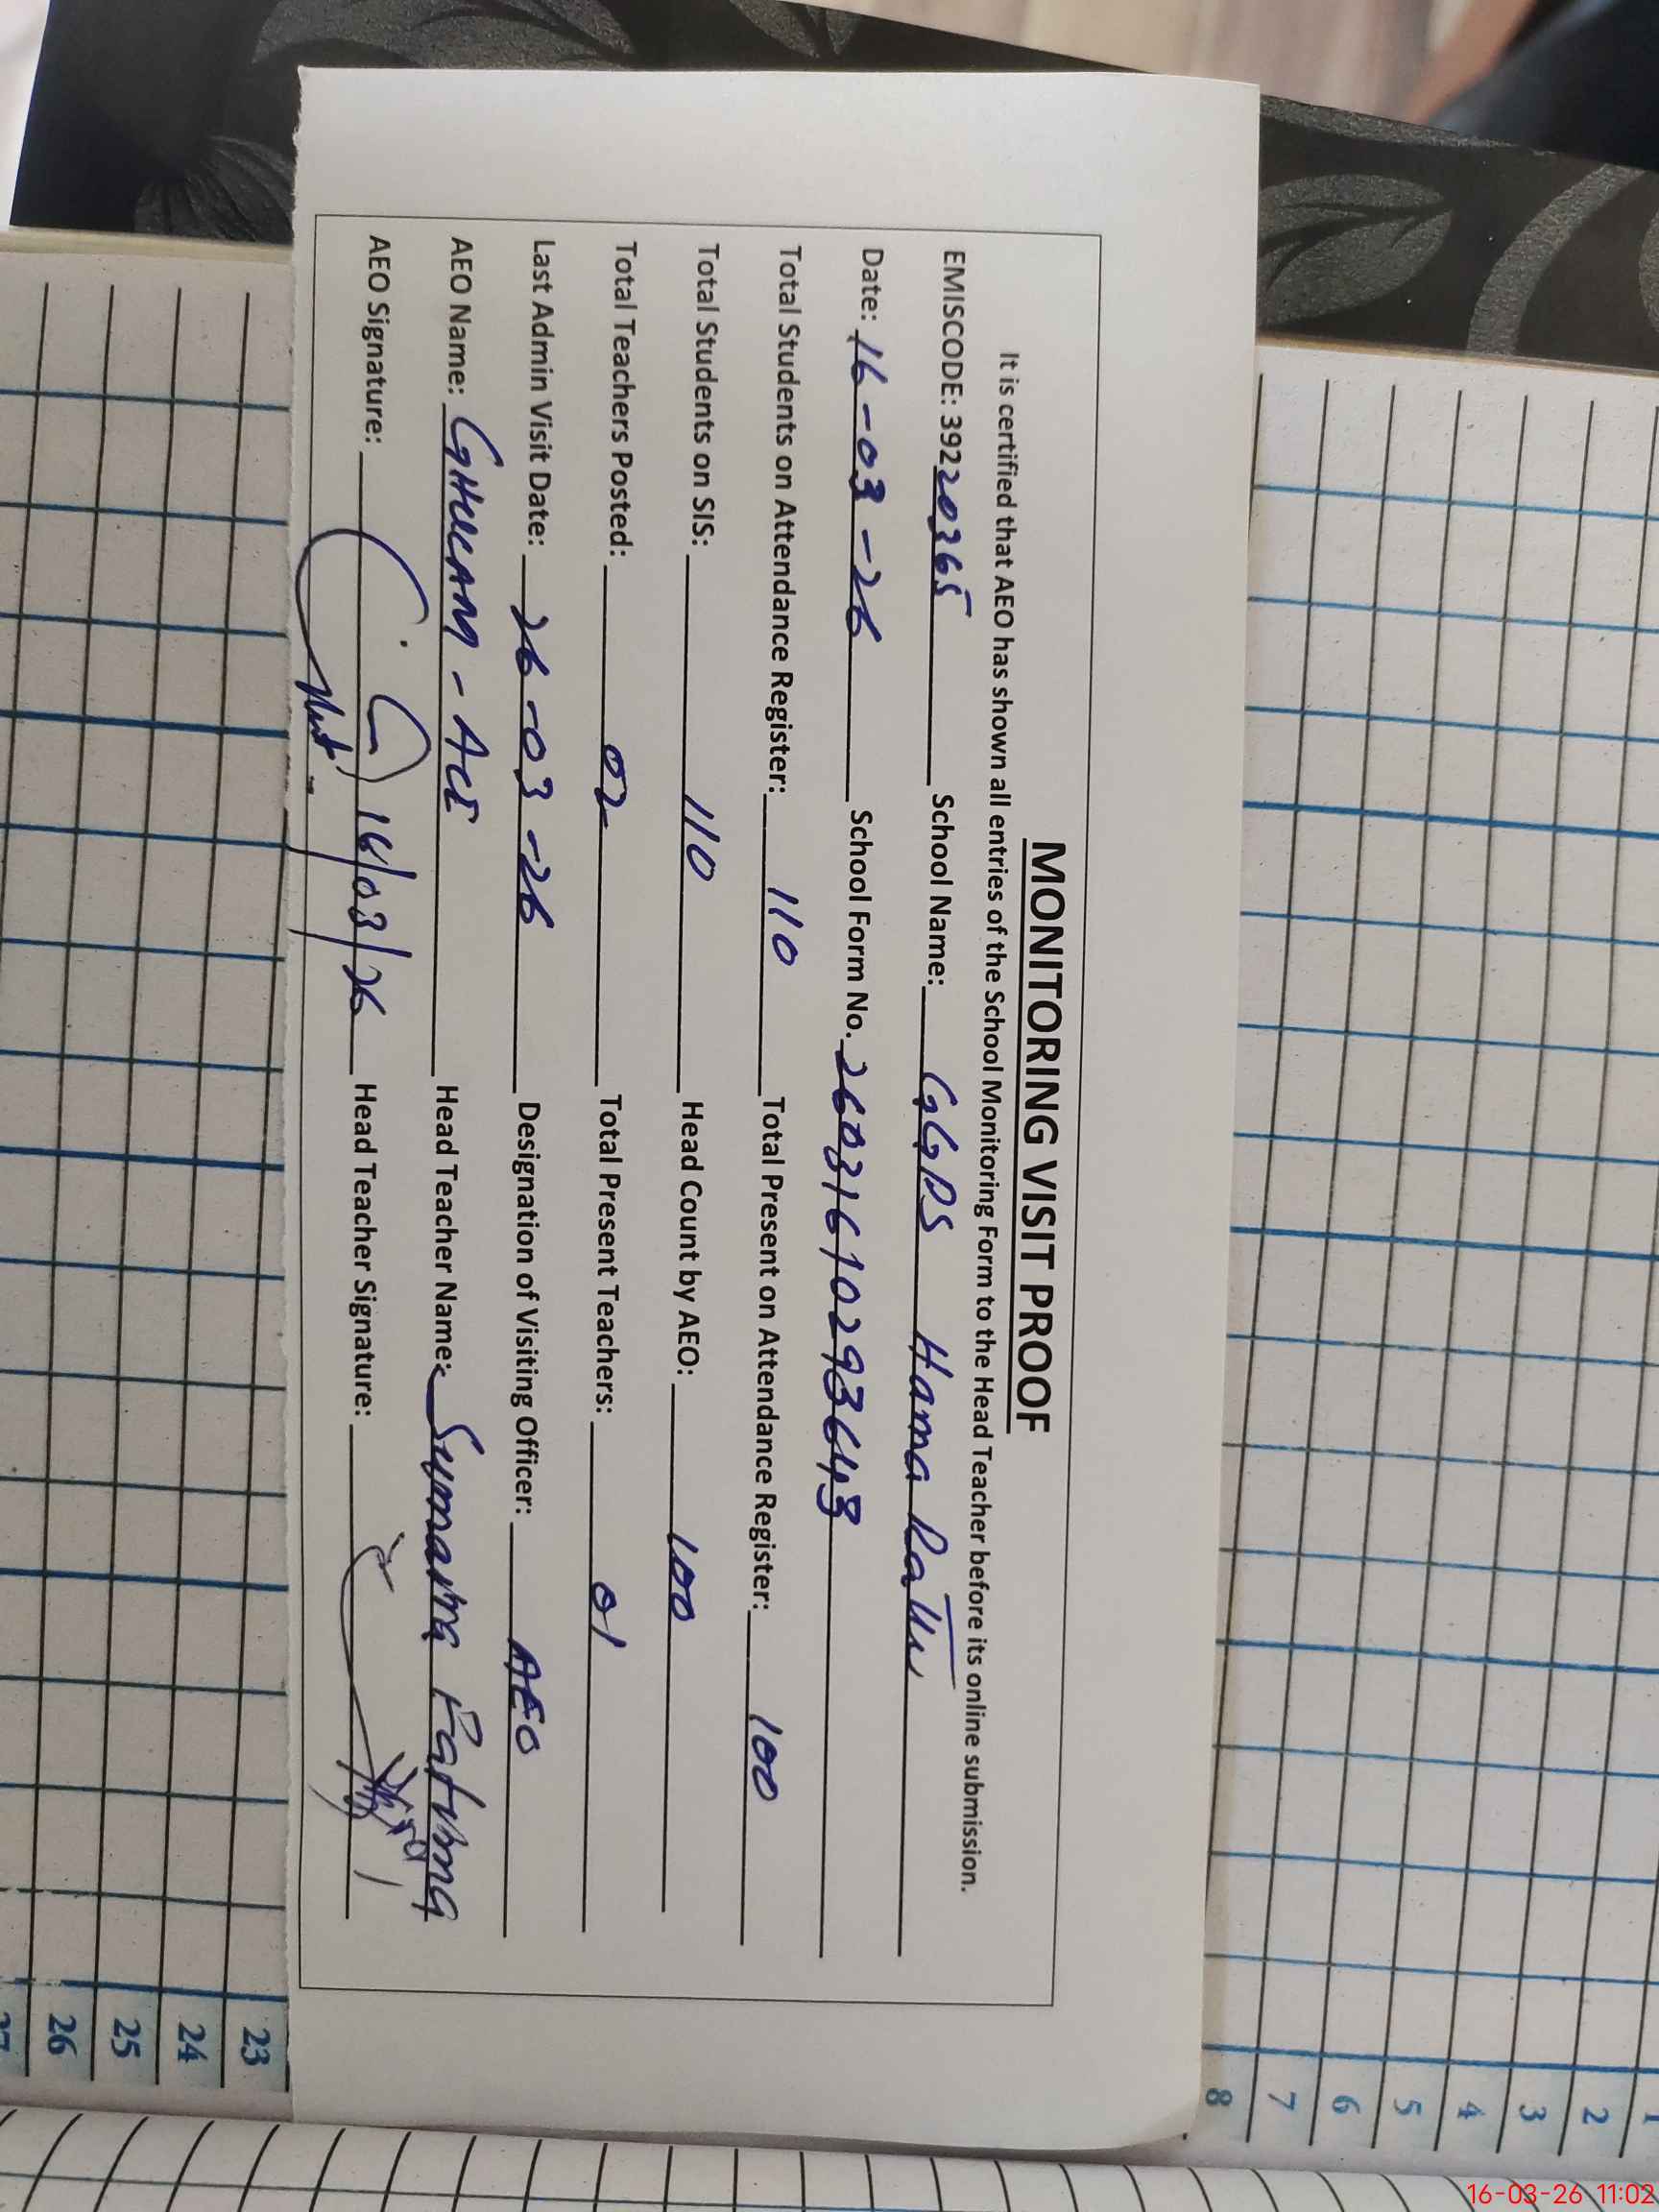 MONITORING VISIT PROOF
It is certified that AEO has shown all entries of the School Monitoring Form to the Head Teacher before its online submission.
EMISCODE: 39220365 School Name: GGPS Hama
Date: 16-03-26 School Form No. 26031610293648
Total Students on Attendance Register: 110 Total Present on Attendance Register: 100
Total Students on SIS: 110 Head Count by AEO: 100
Total Teachers Posted: 02 Total Present Teachers: 01
Last Admin Visit Date: 26-03-26 Designation of Visiting Officer: AEO
AEO Name: Head Teacher Name: Fatima
AEO Signature: 16/03/26 Head Teacher Signature:
1
2
3
4
5
6
7
8
23
24
25
26
27
16-03-26 11:02